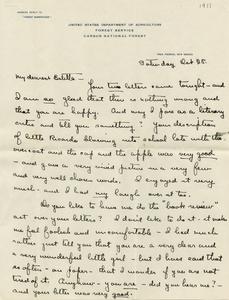 1911
ADDRESS REPLY TO
"FOREST SUPERVISOR"
UNITED STATES DEPARTMENT OF AGRICULTURE
FOREST SERVICE
CARSON NATIONAL FOREST
Saturday Oct 25.
My dearest Estella -
Your two letters came tonight - and
I am so glad that there is nothing wrong and
that you are happy. And may I pose as a literary
critic and tell you something? Your description
of little Ricardo blowing into school late with the
overcoat and the cap and the apple was very good
- and gave a very vivid picture in a very few
and well chosen words. I enjoyed it very
much - and I had my laugh over it too.
Do you like to have me do the "book review"
act over your letters? I don't like to do it - it makes
me feel foolish and uncomfortable - I had much
rather just tell you that you are a very dear and
a very wonderful little girl - but I have said that
so often - on paper - that I wonder if you are not
tired of it. Anyhow - you are - dear by me? -
and your letter was very good.